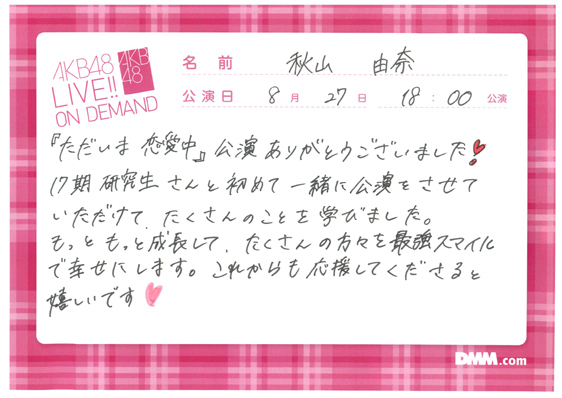 AKB48
LIVE!!
ON DEMAND
AKB
48
名前 秋山 由奈
公演日 8月 27日 18:00 公演
『ただいま 恋愛中』公演ありがとうございました
17期研究生さんと初めて一緒に公演をさせて
いただけて、たくさんのことを学びました。
もっともっと成長して、たくさんの方々を最強スマイル
で幸せにします。これからも応援してくださると
嬉しいです
DMM.com